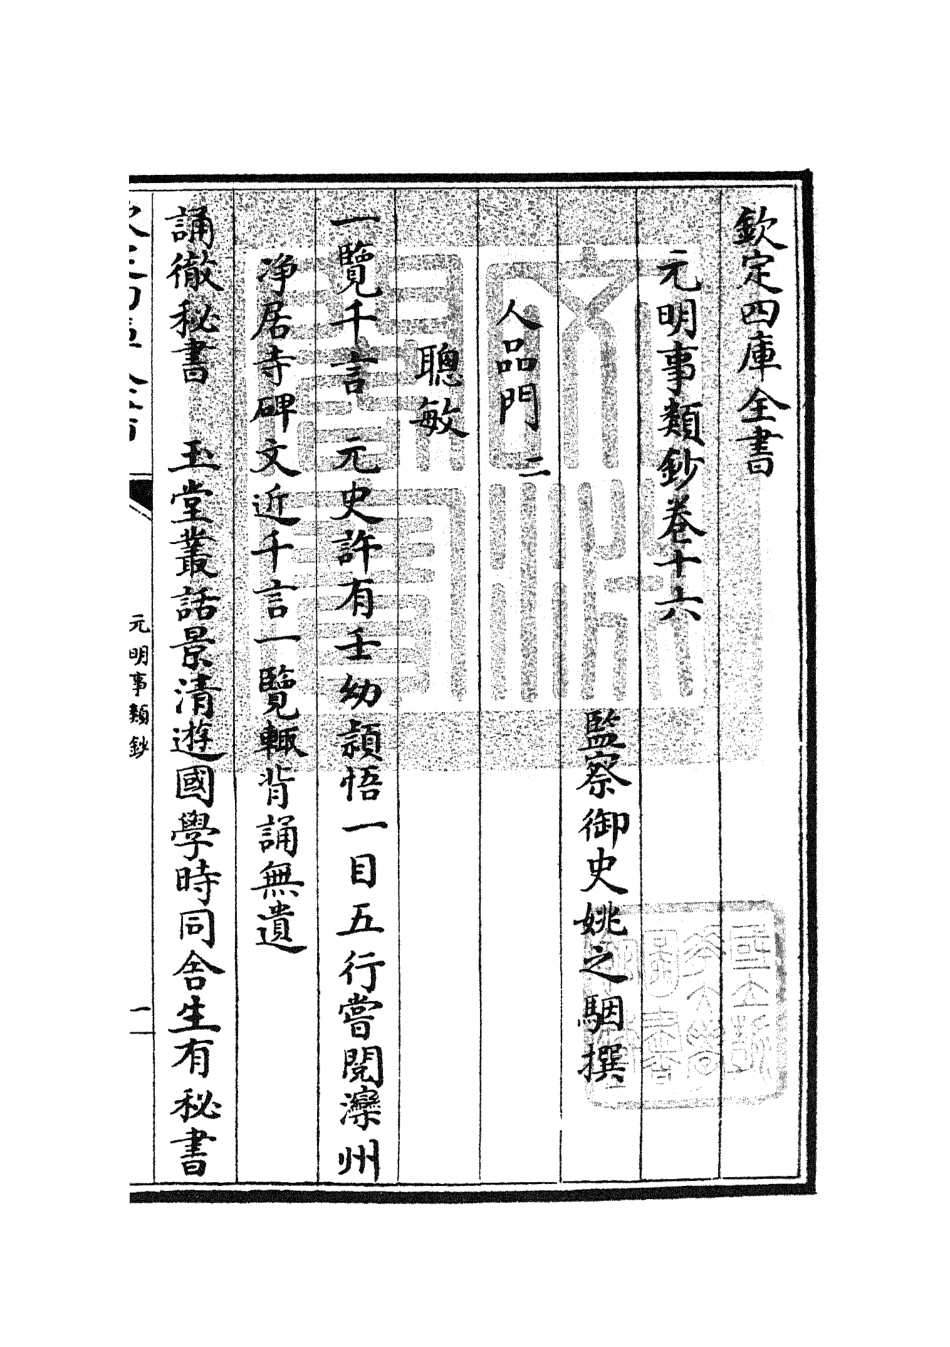 欽定四庫全書
元明事類鈔卷十六
監察御史姚之駰撰
人品門二
聰敏
一覽千言　元史許有壬幼頴悟一目五行嘗閱灤州
淨居寺碑文近千言一覽輒背誦無遺
誦徹秘書　玉堂叢話景清遊國學時同舍生有秘書
元明事類鈔
一